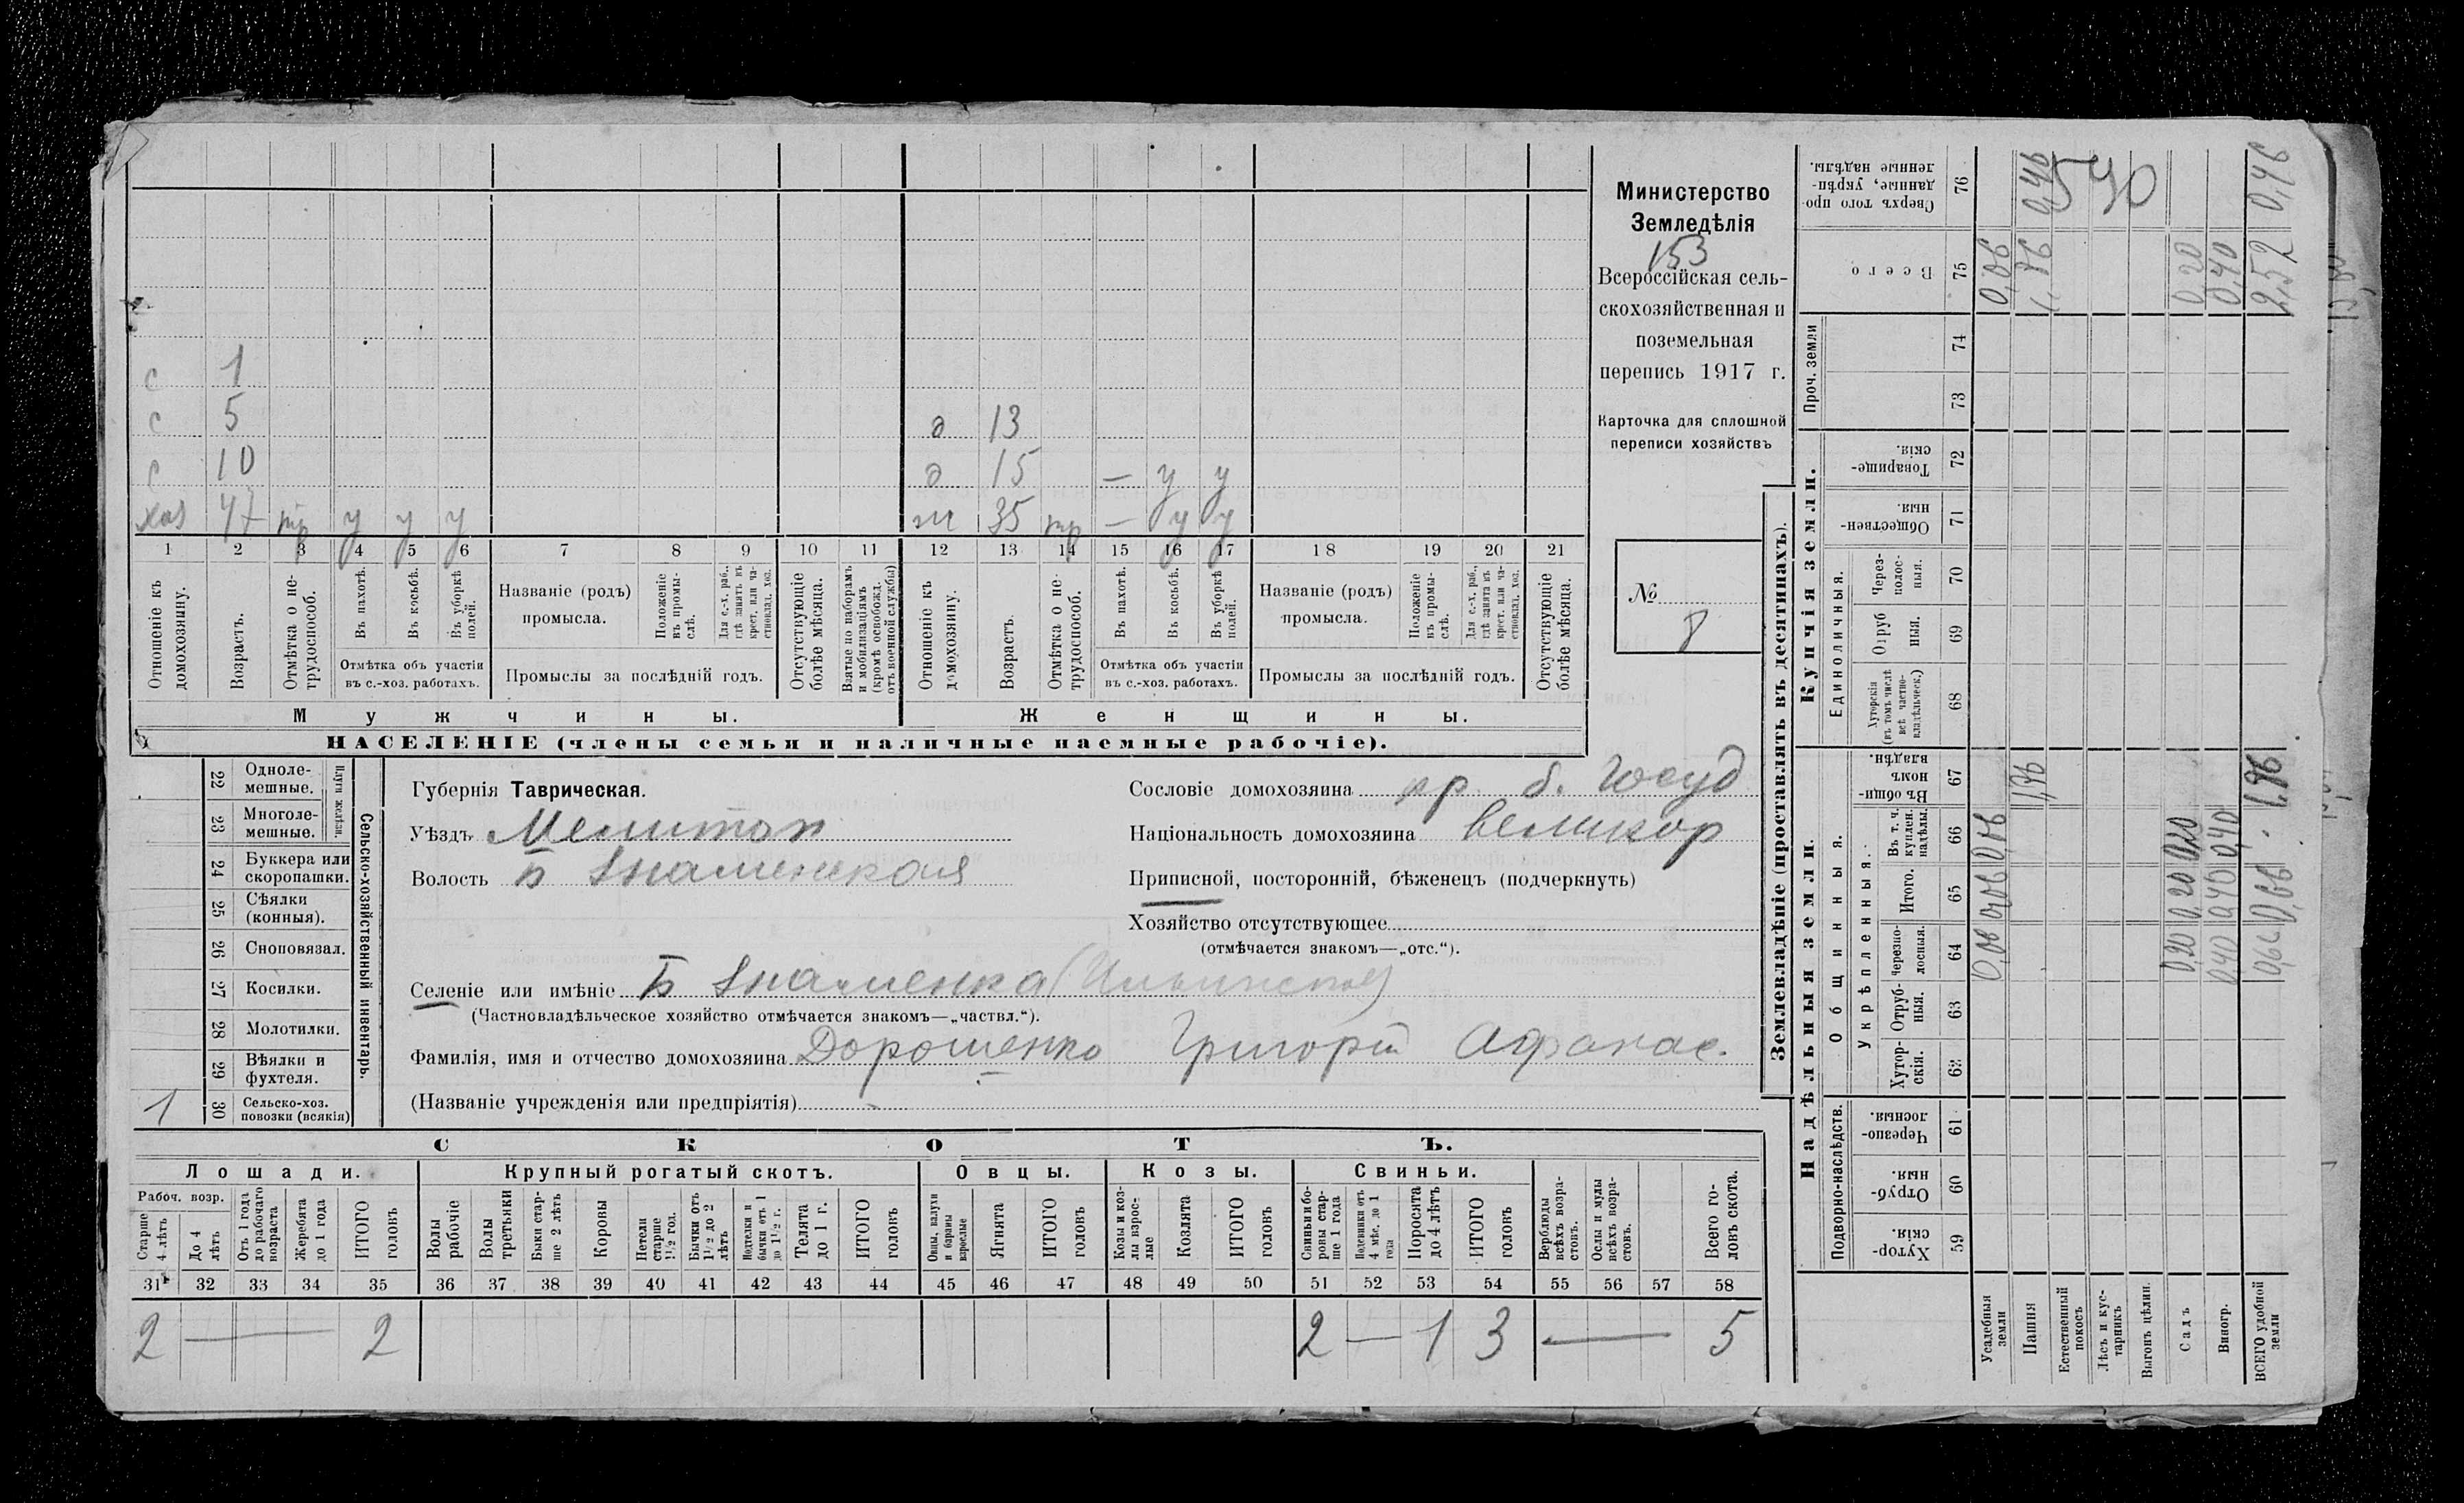 с 1
с 5
д 13
с 10
д 15 — у у
хоз 47 тр у у у
ж 35 тр — у у
1 2 3 4 5 6 7 8 9 10 11 12 13 14 15 16 17 18 19 20 21
Отношеніе къ домохозяину.
Возрастъ.
Отмѣтка о нетрудоспособ.
Въ пахотѣ.
Въ косьбѣ.
Въ уборкѣ полей.
Отмѣтка объ участіи въ с.-хоз. работахъ.
Названіе (родъ) промысла.
Положеніе въ промыслѣ.
Для с.-х. раб., гдѣ занятъ въ крест. или частновлад. хоз.
Промыслы за послѣдній годъ.
Отсутствующіе болѣе мѣсяца.
Взятые по наборамъ и мобилизаціямъ (кромѣ освобожд. отъ военной службы)
Отношеніе къ домохозяину.
Возрастъ.
Отмѣтка о нетрудоспособ.
Въ пахотѣ.
Въ косьбѣ.
Въ уборкѣ полей.
Отмѣтка объ участіи въ с.-хоз. работахъ.
Названіе (родъ) промысла.
Положеніе въ промыслѣ.
Для с.-х. раб., гдѣ занята въ крест. или частновлад. хоз.
Промыслы за послѣдній годъ.
Отсутствующіе болѣе мѣсяца.
Мужчины.
Женщины.
НАСЕЛЕНІЕ (члены семьи и наличные наемные рабочіе).
Министерство
Земледѣлія
153
Всероссійская сель-
скохозяйственная и
поземельная
перепись 1917 г.
Карточка для сплошной
переписи хозяйствъ
№
8
22 Одноле-мешные.
23 Многоле-мешные.
Плуги желѣзн.
24 Буккера или скоропашки.
25 Сѣялки (конныя).
26 Сноповязал.
27 Косилки.
28 Молотилки.
29 Вѣялки и фухтеля.
1 30 Сельско-хоз. повозки (всякія)
Сельско-хозяйственный инвентарь.
Губернія Таврическая.
Уѣздъ Мелитоп
Волость Б Знаменская
Сословіе домохозяина кр. б. Госуд
Національность домохозяина великор
Приписной, посторонній, бѣженецъ (подчеркнуть)
Хозяйство отсутствующее
(отмѣчается знакомъ—„отс.“).
Селеніе или имѣніе Б Знаменка (Ильинское)
(Частновладѣльческое хозяйство отмѣчается знакомъ—„частвл.“).
Фамилія, имя и отчество домохозяина Дорошенко Григорій Афанас.
(Названіе учрежденія или предпріятія)
СКОТЪ.
Лошади.
Крупный рогатый скотъ.
Овцы.
Козы.
Свиньи.
Рабоч. возр.
Старше 4 лѣтъ
До 4 лѣтъ
Отъ 1 года до рабочаго возраста
Жеребята до 1 года
ИТОГО головъ
Волы рабочіе
Волы третьяки
Быки старше 2 лѣтъ
Коровы
Нетели старше 1½ год.
Бычки отъ 1½ до 2 лѣтъ
Подтелки и бычки отъ 1 до 1½ г.
Телята до 1 г.
ИТОГО головъ
Овцы, валухи и бараны взрослые
Ягнята
ИТОГО головъ
Козы и козлы взрослые
Козлята
ИТОГО головъ
Свиньи и бороны старше 1 года
Подсвинки отъ 4 мѣс. до 1 года
Поросята до 4 лѣтъ
ИТОГО головъ
Верблюды всѣхъ возрастовъ.
Ослы и мулы всѣхъ возрастовъ.
Всего головъ скота.
31 32 33 34 35 36 37 38 39 40 41 42 43 44 45 46 47 48 49 50 51 52 53 54 55 56 57 58
2 — 2 2 — 1 3 — 5
Землевладѣніе (проставлять въ десятинахъ).
Надѣльныя земли.
Купчія земли.
Проч. земли
Подворно-наслѣдств.
Общинныя.
Укрѣпленныя.
Единоличныя.
Хуторскія 59
Отрубныя. 60
Черезполосныя. 61
Хуторскія. 62
Отрубныя. 63
Черезполосныя. 64
Итого. 65
Въ т. ч. куплен. надѣлы. 66
Въ общинномъ владѣн. 67
Хуторскія (въ томъ числѣ всѣ частновладѣльческ.) 68
Отрубныя. 69
Черезполосныя. 70
Общественныя. 71
Товарищескія. 72
73
74
Всего 75
Сверхъ того проданные, укрѣпленные надѣлы. 76
Усадебныя земли 0,06 0,06 0,06 0,06
Пашня 1,86 1,86 0,46
540
Естественный покосъ
Лѣсъ и кустарникъ
Выгонъ цѣлин.
Садъ 0,20 0,20 0,20 0,20
Виногр. 0,40 0,40 0,40 0,40
ВСЕГО удобной земли 0,66 0,66 1,86 2,52 0,46